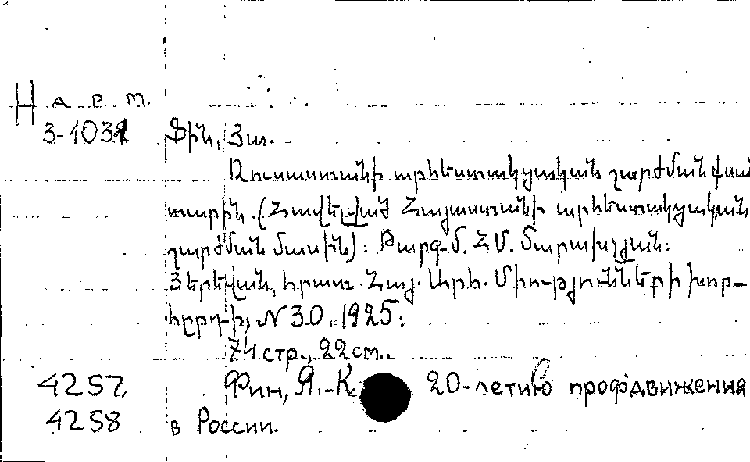 Н а. в. т.
3-1031 Ֆին, Յա.
Ռուսաստանի արհեստակցական շարժման քսան
տարին. (Հավելված Հայաստանի արհեստակցական
շարժման մասին): Թարգմ. Հ.Մ. Մարախչյան:
Յերեվան, հրատ. Հայ. Արհ. Միությունների խոր-
հըրդի, № 30. 1925:
74 стр., 22 см.
4257, Фин, Я. К 20-летию профдвижения
4258 в России.